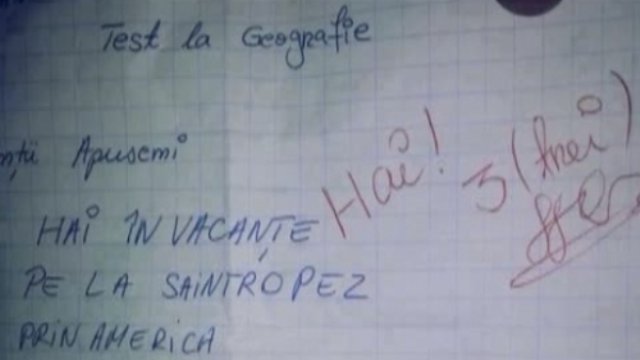 Test la Geografie
nții Apuseni
HAI ÎN VACANȚE
PE LA SAINTROPEZ
PRIN AMERICA
Hai!
3 (trei)